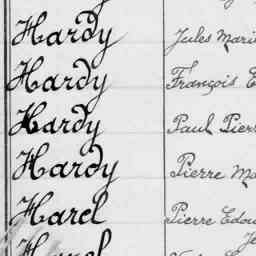 Hardy Jules Mari
Hardy François E
Hardy Paul Pierr
Hardy Pierre Ma
Harel Pierre Edou
Je
Harel